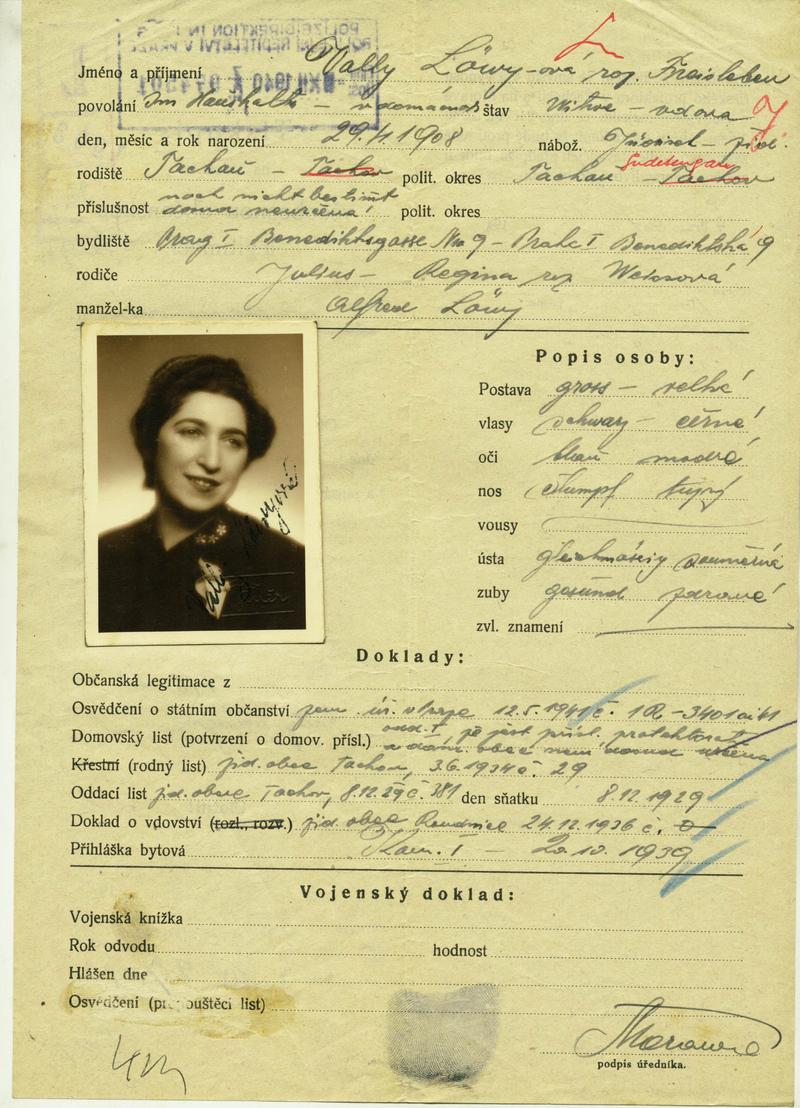 Jméno a příjmení Vally Löwy-ová roz. Freisleben
povolání Im Haushalte – v domácnosti stav Witwe – vdova
den, měsíc a rok narození 29.4.1908 nábož. Jüdisch – žid.
rodiště Tachau – Tachov polit. okres Tachau – Tachov
Sudetengau
příslušnost noch nicht bestimmt
doma neurčena! polit. okres
bydliště Prag I Benediktsgasse Nro 9 – Praha I Benediktská 9
rodiče Julius – Regina roz.
manžel-ka Alfred Löwy
Popis osoby:
Postava gross – velká
vlasy schwarz – černé
oči blau modré
nos stumpf tupý
vousy
ústa gleichmässig souměrná
zuby gesund zdravé
zvl. znamení
Doklady:
Občanská legitimace z
Osvědčení o státním občanství zem. úř. v Praze 12.5.1941 č. 1R-3401
Domovský list (potvrzení o domov. přísl.)
Křestní (rodný list) žid. obec Tachov, 3.6.1934 č. 29
Oddací list žid. obec Tachov, 8.12.29 č. 381 den sňatku 8.12.1929
Doklad o vdovství (rozl., rozv.) žid. obec Roudnice 24.12.1936 č. 0
Přihláška bytová Kom. I – 20.10.1939
Vojenský doklad:
Vojenská knížka
Rok odvodu hodnost
Hlášen dne
Osvědčení (propouštěcí list)
podpis úředníka.